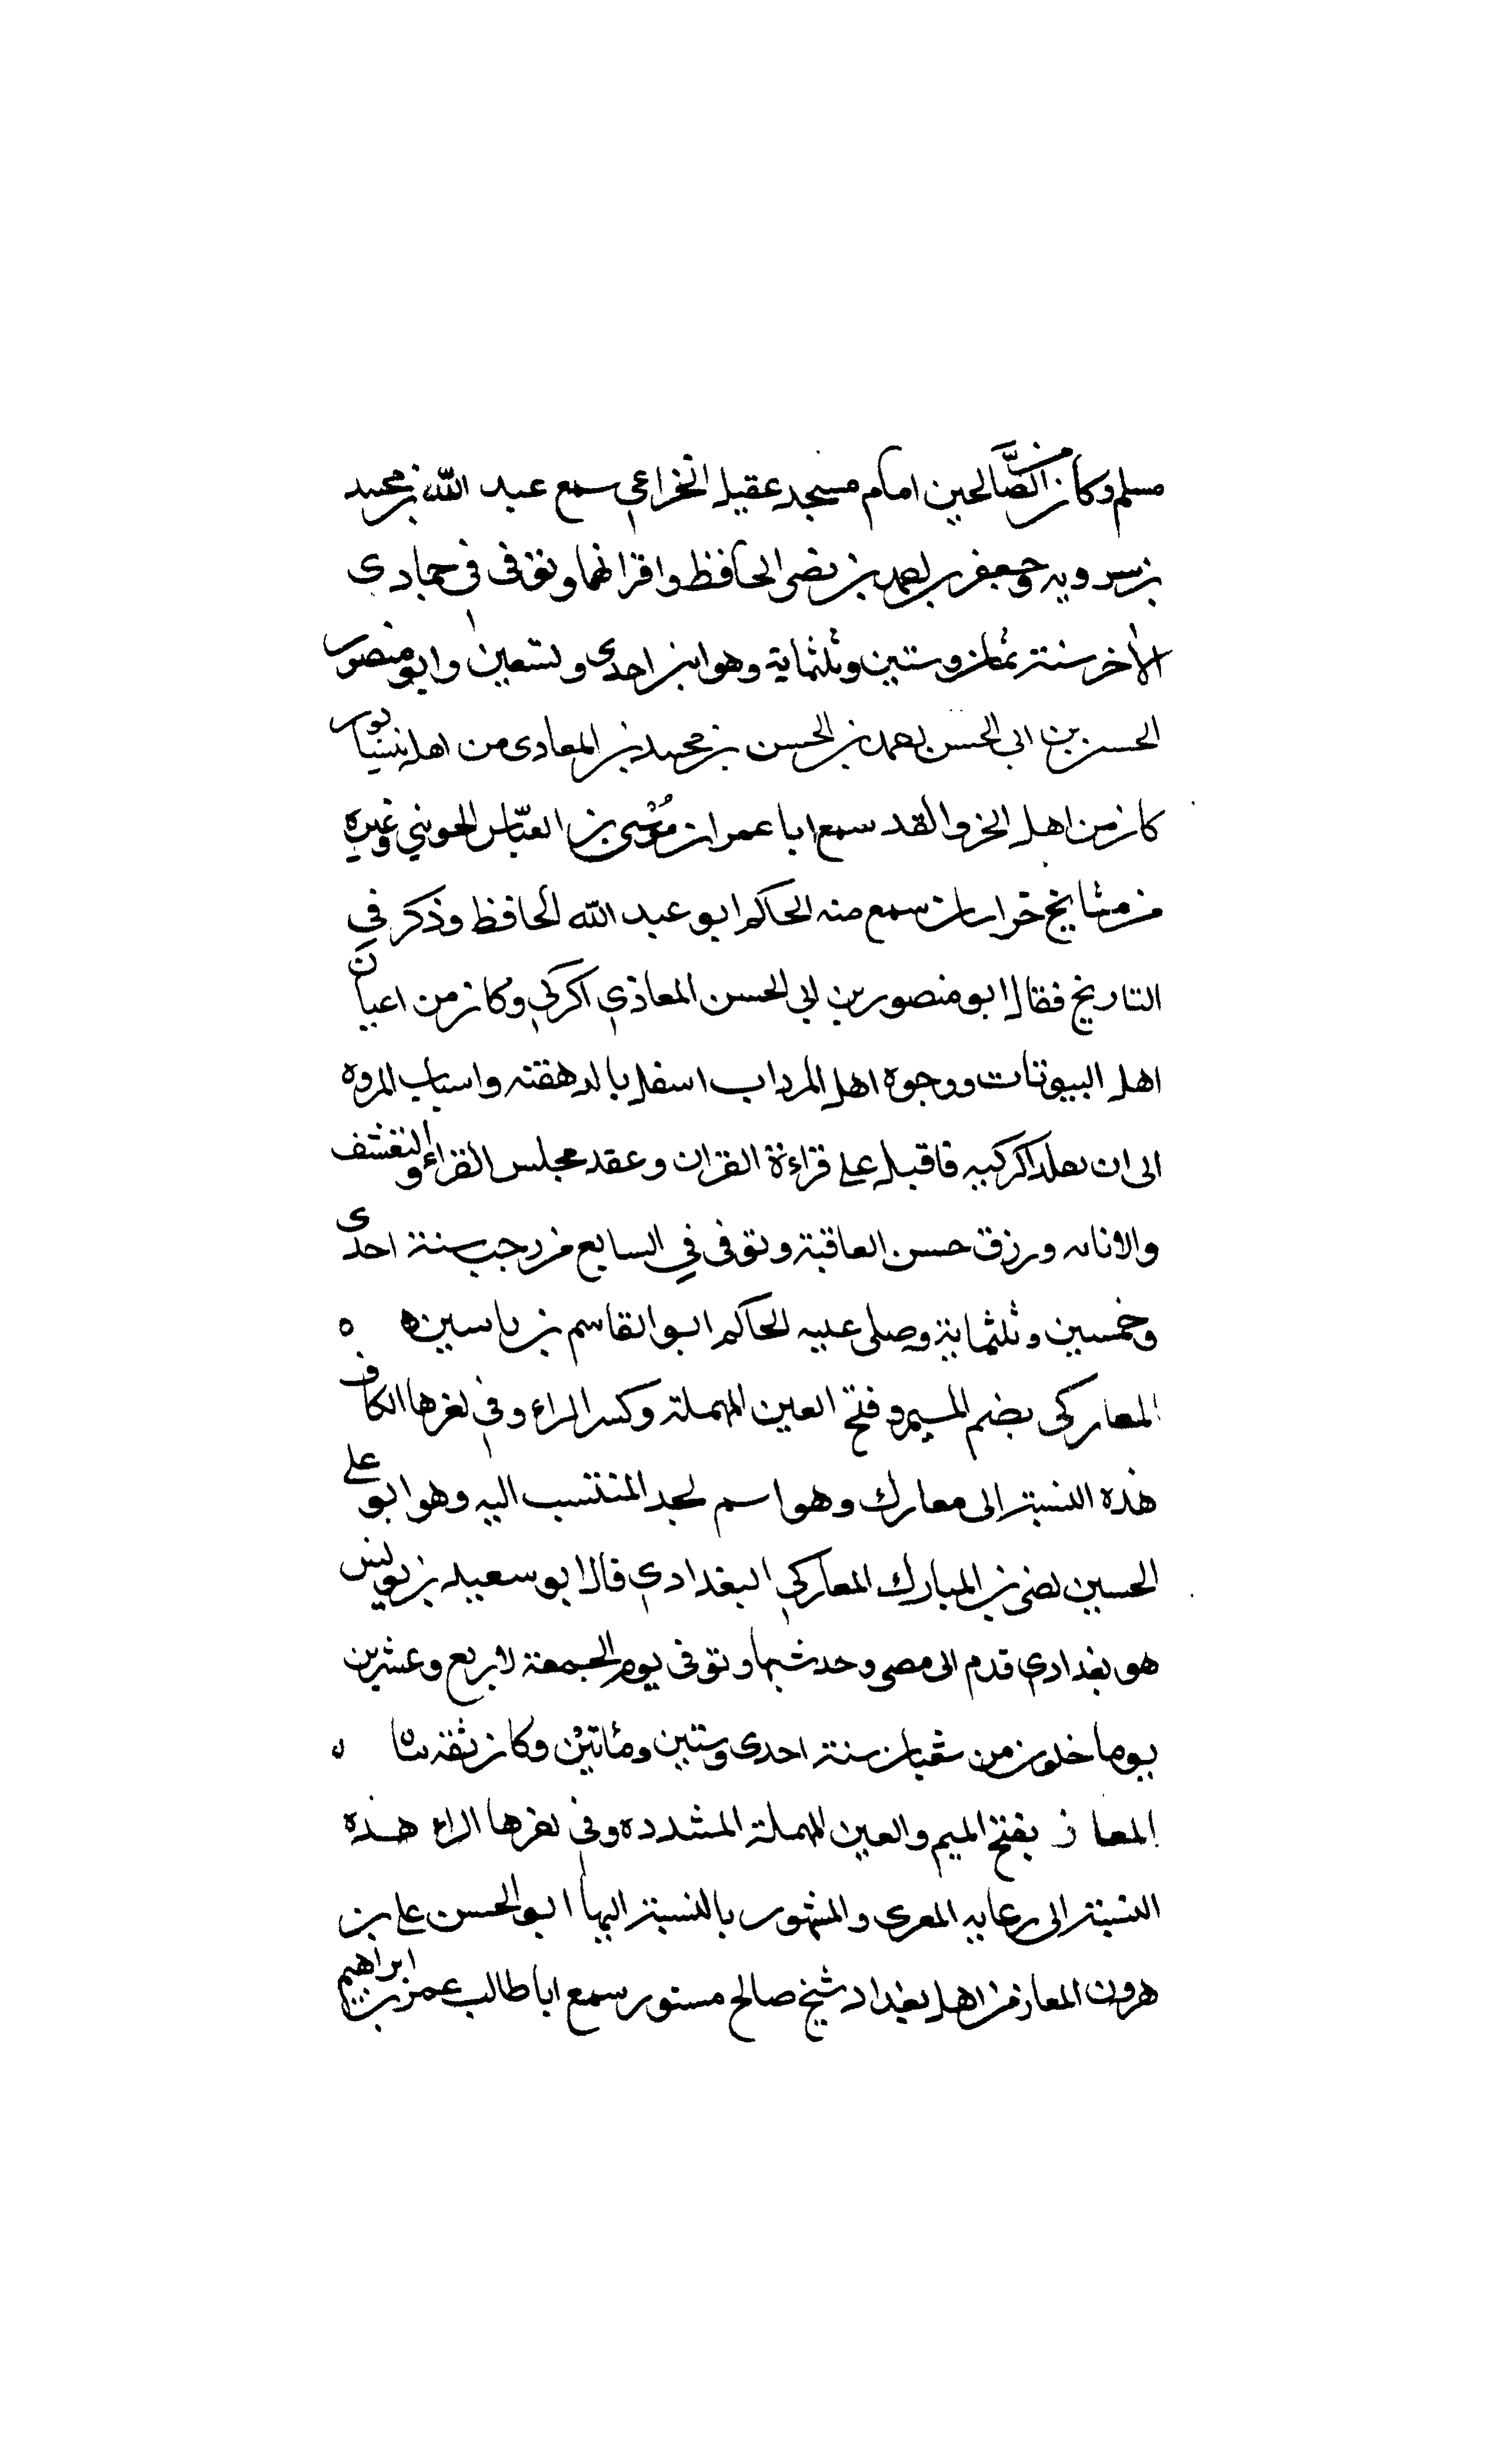 مسلم وكان من الصَّالحين امام مسجد عقيل الخزاعي سمع عبد الله بن محمد
بن سرويه وجعفر بن احمد بن نصر الحافظ واقرانهما وتوفى في جمادى
الاخر سنة ثمان وستين وثلثماية وهو ابن احدى وتسعين وابو منصور
الحسن بن ابى الحسن احمد بن الحسن بن محمد بن المعادى من اهل نيسابور
كان من اهل الخز والقد سمع ابا عمران مُوْسى بن العبّاس الجويني وغيره
من مشايخ خراسان سمع منه الحاكم ابو عبد الله الحافظ وذكر في
التاريخ فقال ابو منصور بن ابى الحسن المعاذي اكركي وكان من اعيان
اهل البيوتات ووجوه اهل المرداب اسفل بالدهقنه واسباب المروه
الى ان فاقبل على قراءة القران وعقد مجلس القراء والتقشف
والانابه ورزق حسن العاقبة وتوفى في السابع من رجب سنة احدى
وخمسين وثلثماية وصلى عليه الحاكم ابو القاسم بن ياسين ه ه
المعاركى بضم الميم وفتح العين المهملة وكسر الراء وفي اخرها الكاف
هذه النسبة الى معارك وهو اسم لجد المنتسب اليه وهو ابو على
الحسين نصر بن المبارك المعاركي البغدادي قال ابو سعيد بن يونس
هو بغدادي قدم الى مصر وحدث بها وتوفى يوم الجمعة لاربع وعشرين
يوما خلون من شعبان سنة احدى وستين ومأتين وكان ثقة ثبتا ه
المعاز بفتح الميم والعين المهملة المشدده وفي اخرها الراء هذه
النسبة الى رعايه المعرى والمشهور بالنسبة اليها ابو الحسن على بن
هرون المعاز من اهل بغداد شيخ صالح مستور سمع ابا طالب عمر بن ابراهيم